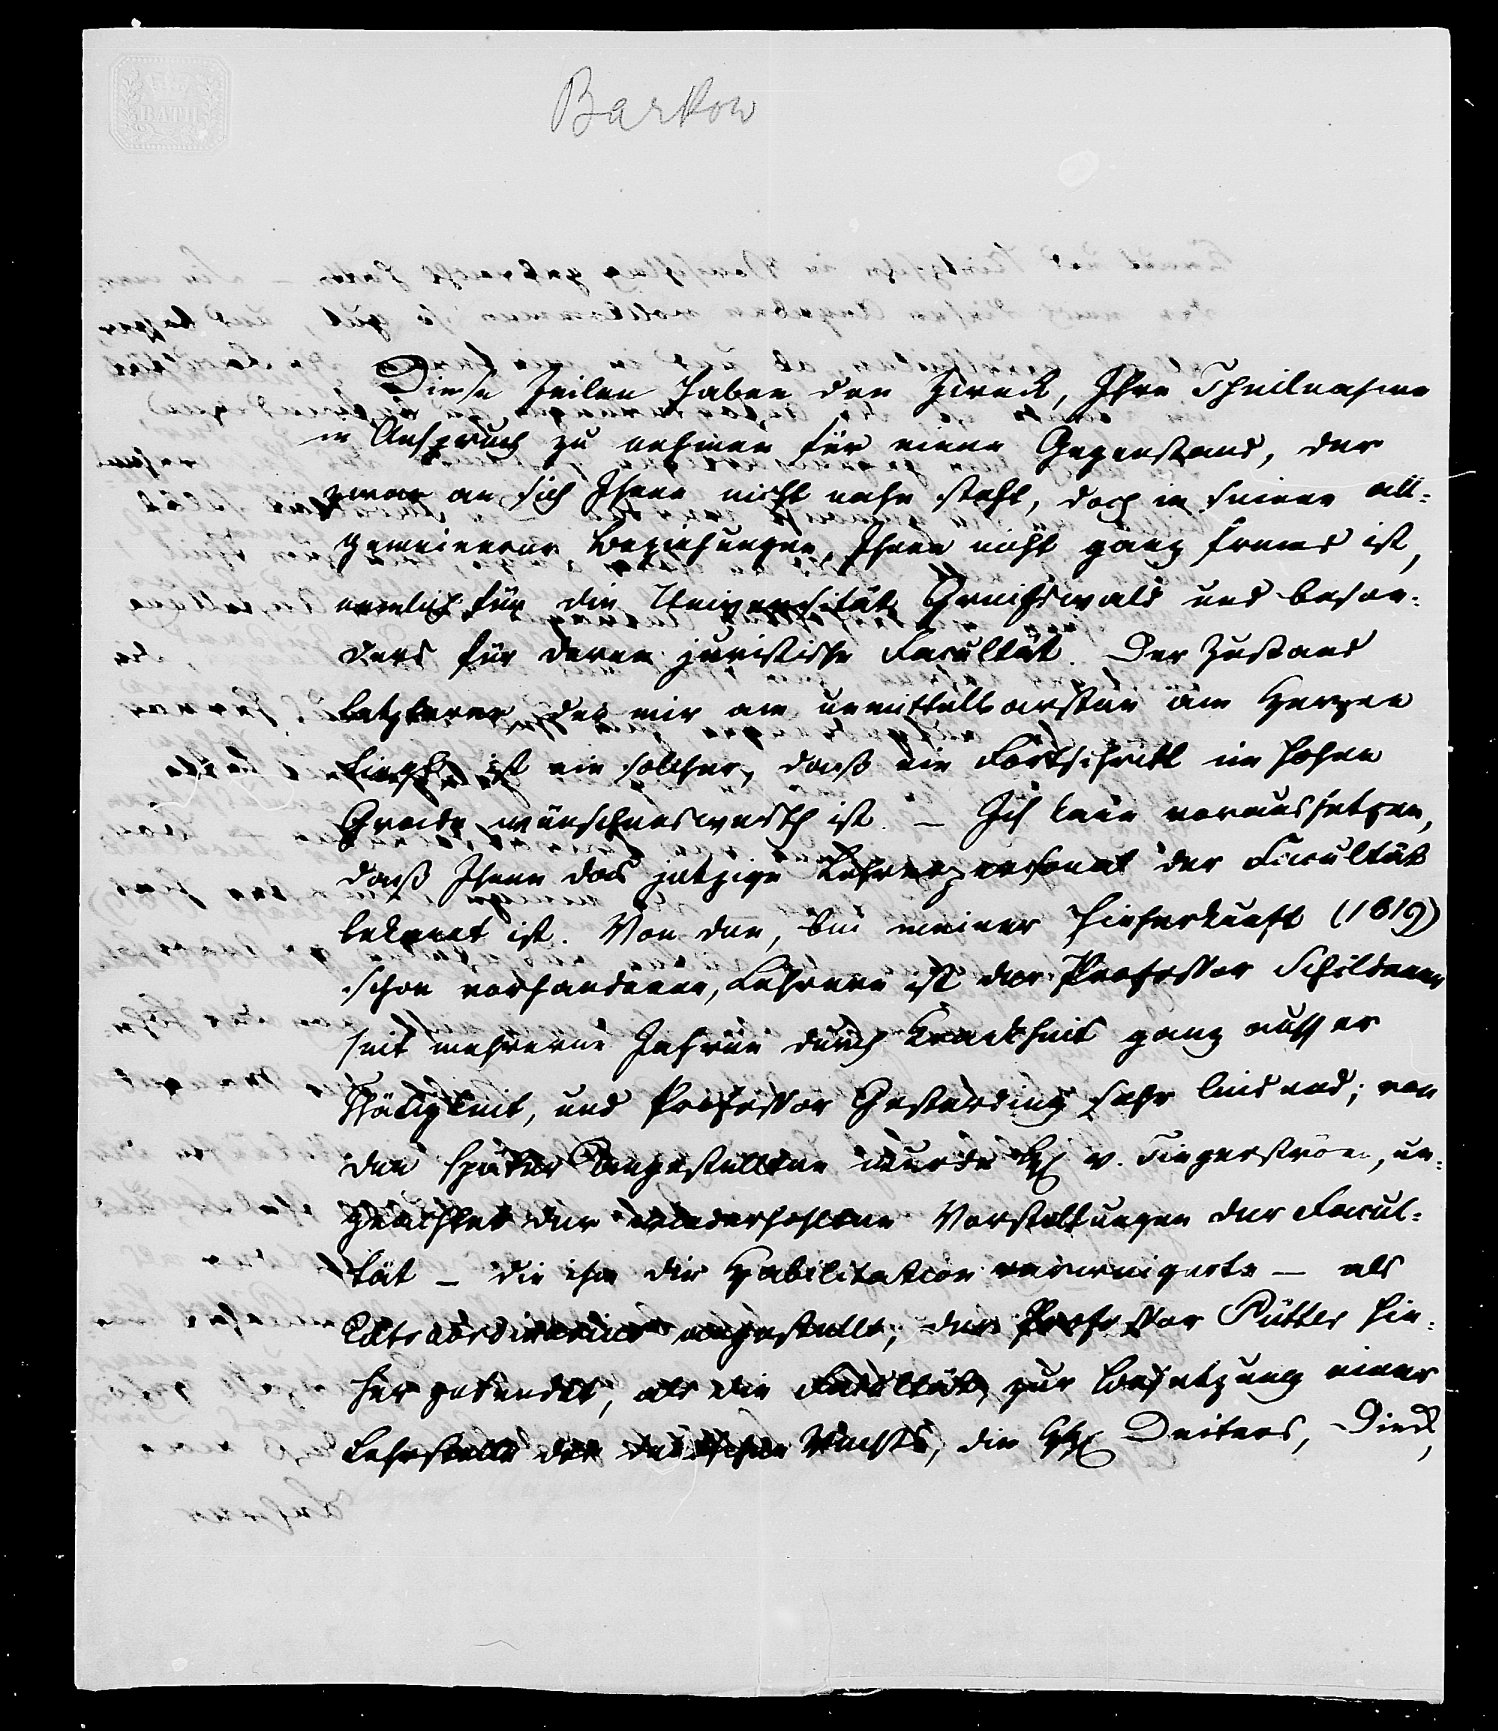 BATH
Barkow
Diese Zeilen haben den Zweck, Ihre Theilnahme
in Anspruch zu nehmen für einen Gegenstand, der
zwar an sich Ihnen nicht nahe steht, doch in seinen all-
gemeineren Beziehungen, Ihnen nicht ganz fremd ist,
nemlich für die Universität Greifswald und beson-
ders für deren juristische Facultät. Der Zustand
letzterer, der mir am unmittelbarsten am Herzen
liegt, ist ein solcher, daß ein Fortschritt im hohen
Grade wünschenswerth ist. – Ich kann voraussetzen,
daß Ihnen das jetzige Lehrerpersonal der Facultät
bekannt ist. Von den, bei meiner Hieherkunft (1819)
schon vorhandenen, Lehrern ist der Professor Schildener
seit mehreren Jahren durch Krankheit ganz ausser
Thätigkeit, und Professor Gesterding sehr leidend; von
den später angestellten wurde H v. Tigerström, un-
geachtet der wiederhohlten Vorstellungen der Facul-
tät – die ihm die Habilitation verweigerte – als
Extraordinarius angestellt; der Professor Pütter hie-
her gesendet, als die Facultät zur Besetzung einer
Lehrstelle des deutschen Rechts, die HH Deiters, Dieck,